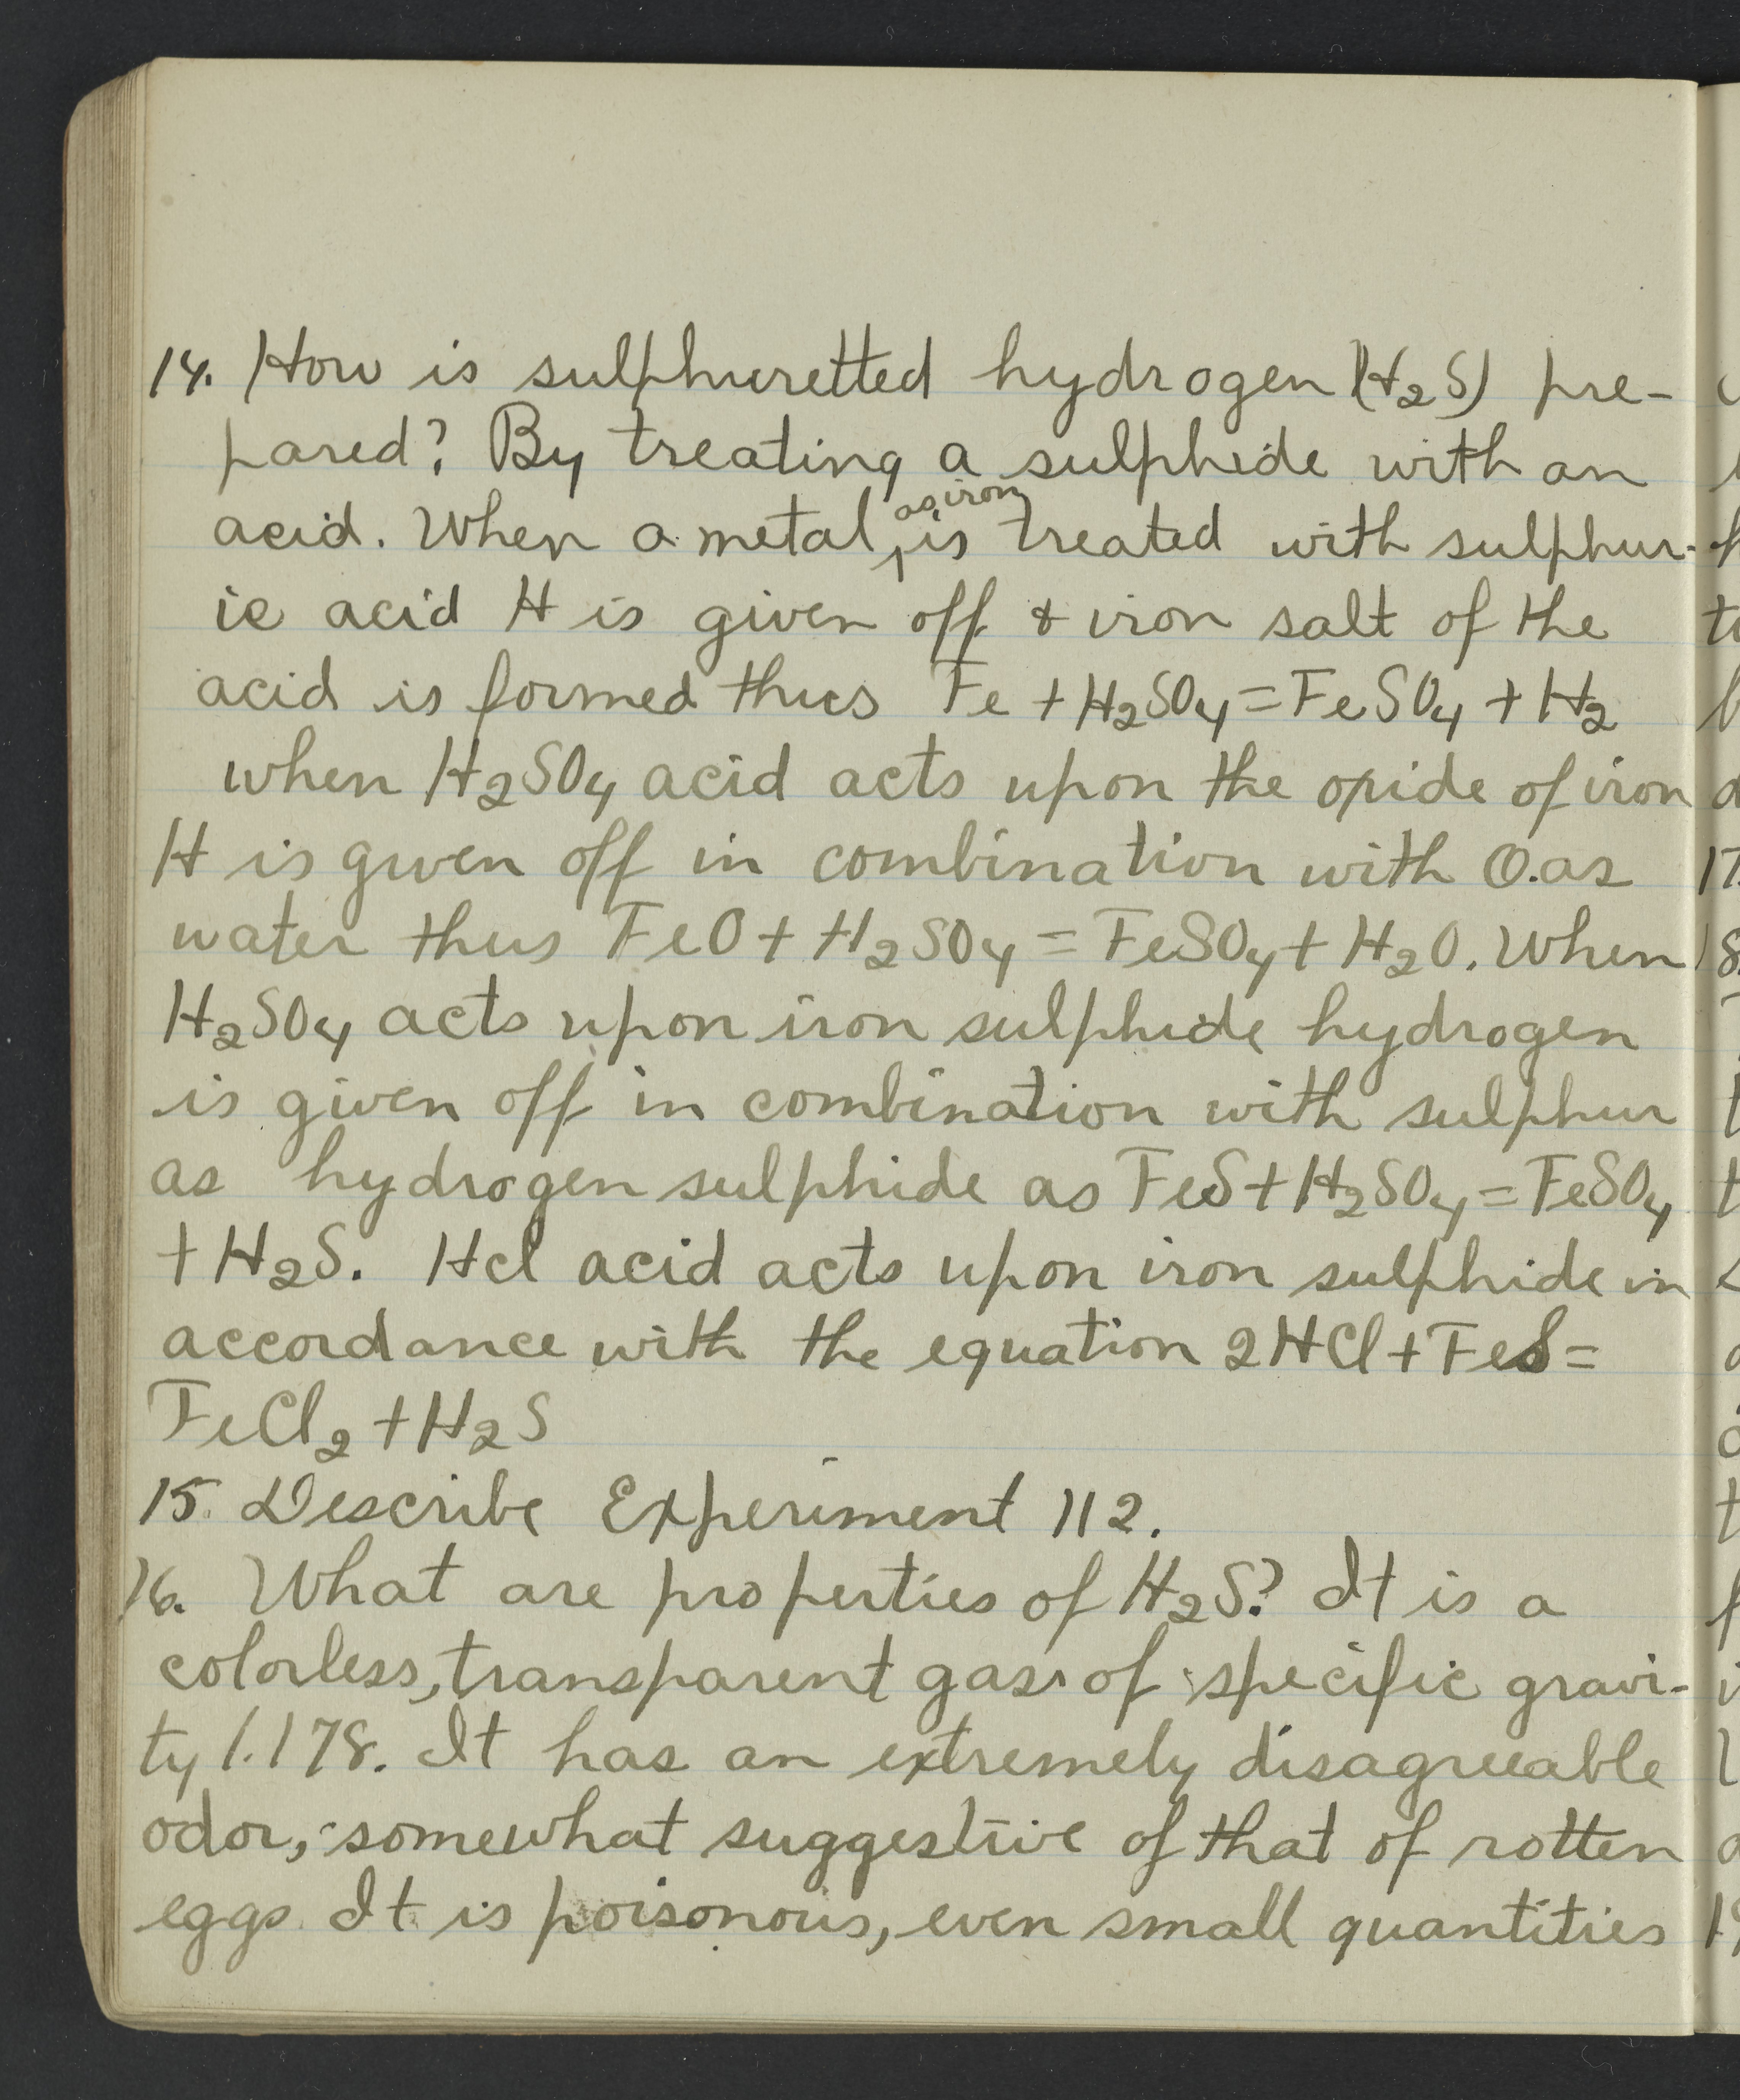 14. How is sulphuretted hydrogen (H₂S) pre-
pared? By treating a sulphide with an
acid. When a metal, as iron, is treated with sulphur-
ic acid H is given off & iron salt of the
acid is formed thus Fe + H₂SO₄ = FeSO₄ + H₂
when H₂SO₄ acid acts upon the oxide of iron
H is given off in combination with O. as
water thus FeO + H₂SO₄ = FeSO₄ + H₂O. When
H₂SO₄ acts upon iron sulphide hydrogen
is given off in combination with sulphur
as hydrogen sulphide as FeS + H₂SO₄ = FeSO₄
+ H₂S. Hcl acid acts upon iron sulphide in
accordance with the equation 2HCl + FeS =
FeCl₂ + H₂S
15. Describe Experiment 112.
16. What are properties of H₂S? It is a
colorless, transparent gas of specific gravi-
ty 1.178. It has an extremely disagreeable
odor, somewhat suggestive of that of rotten
eggs. It is poisonous, even small quantities